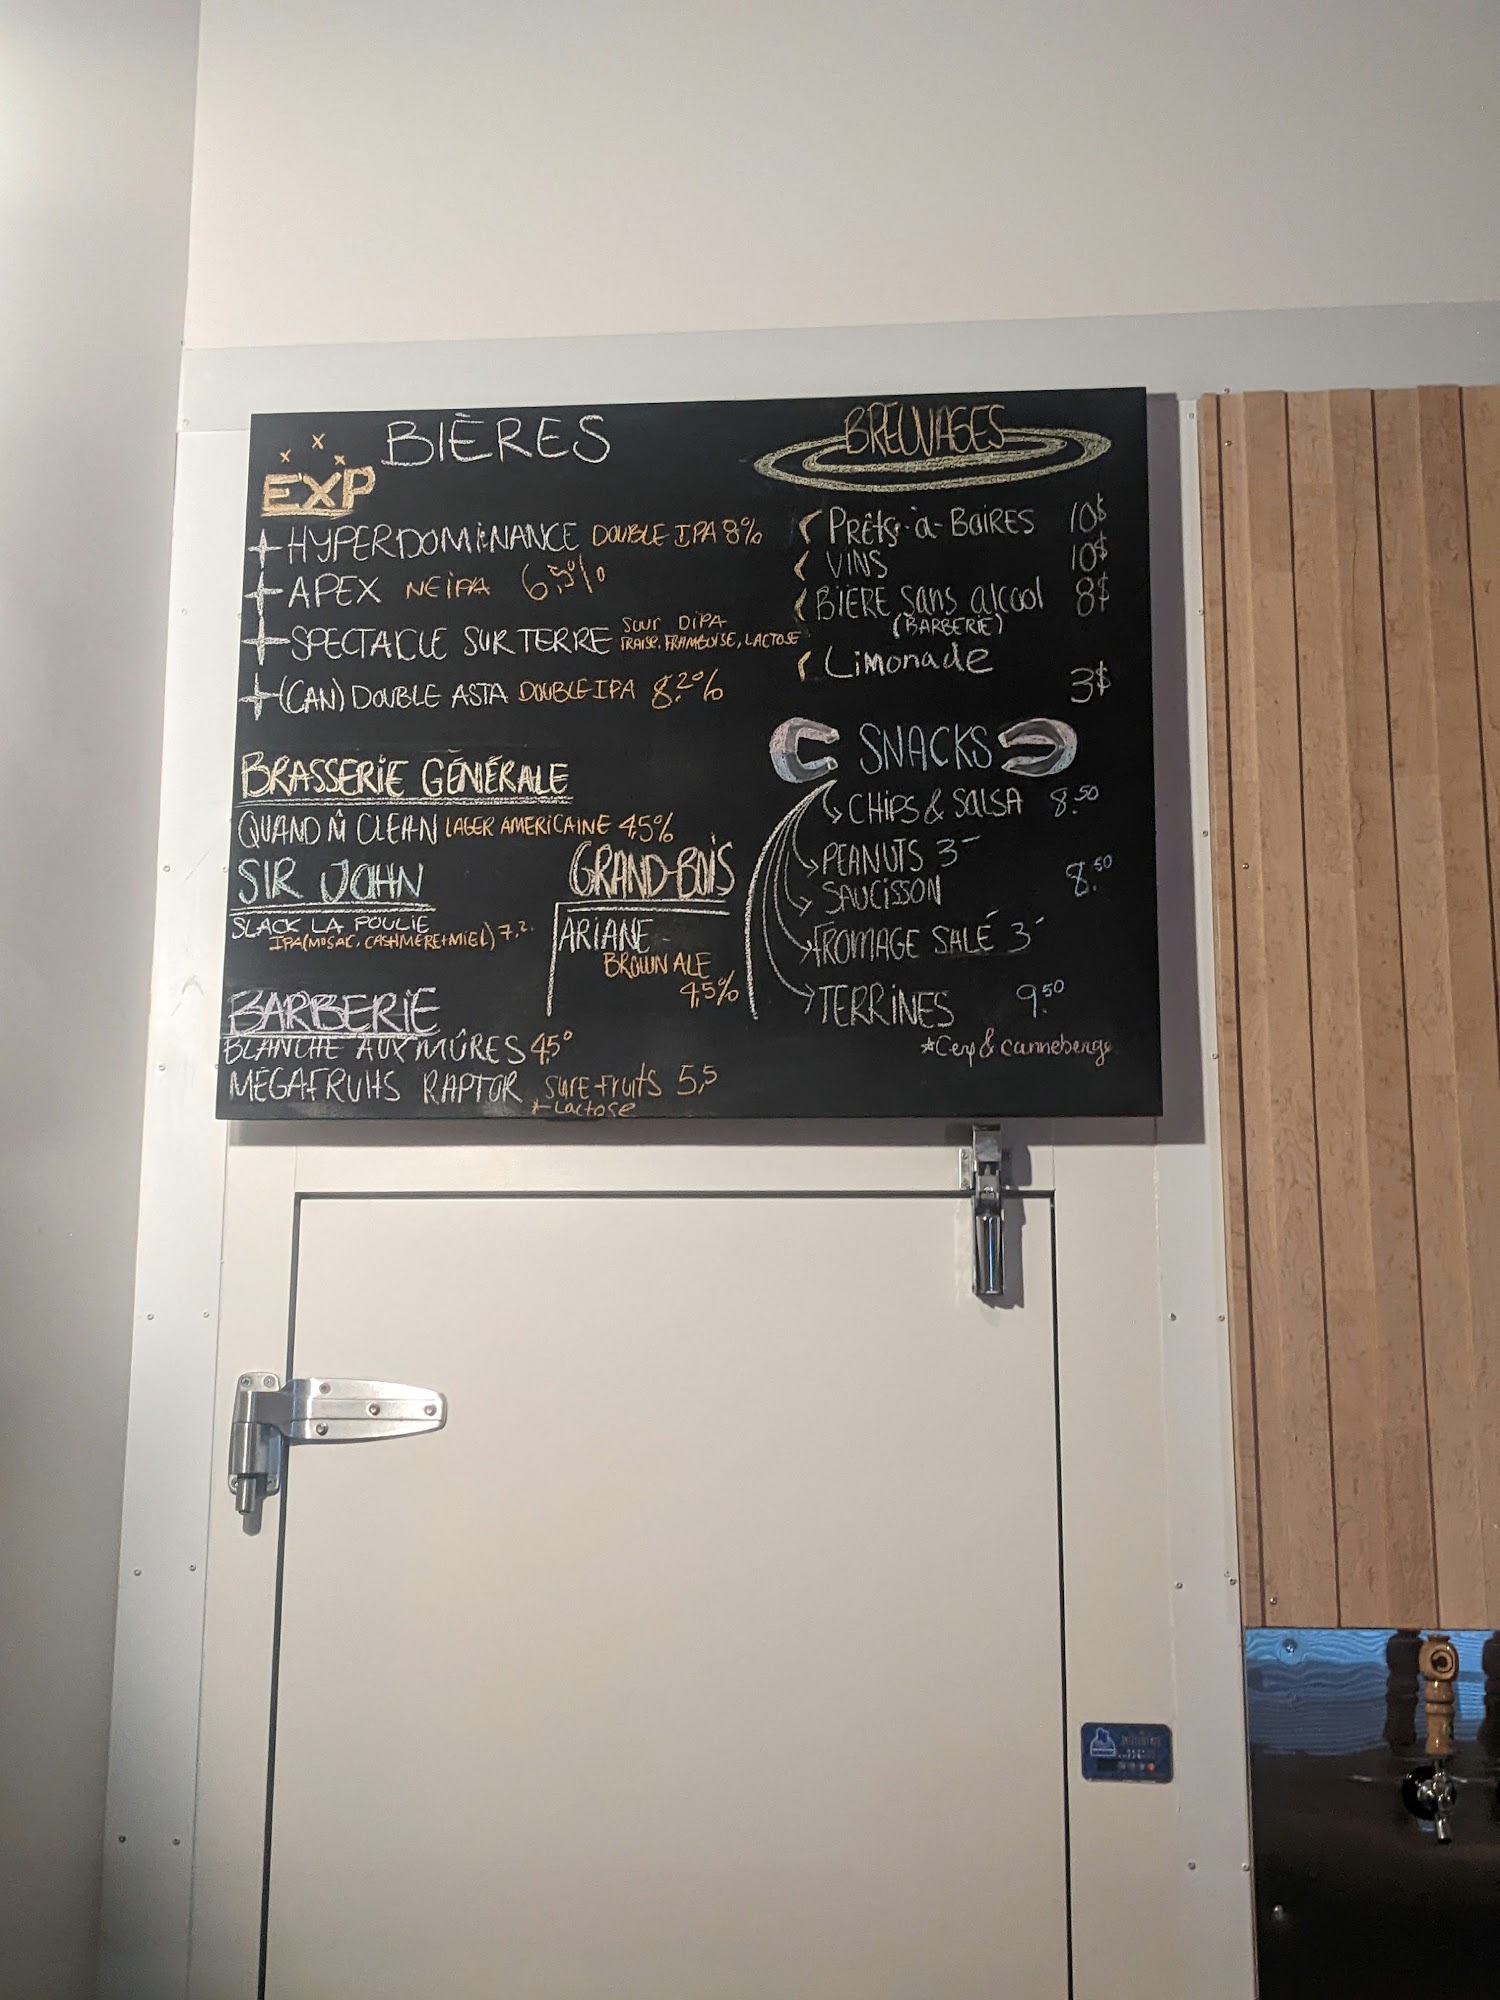 BIÈRES
EXP
HYPERDOMINANCE DOUBLE IPA 8%
APEX NEIPA 6,5%
SPECTACLE SUR TERRE SOUR DIPA
FRAISE, FRAMBOISE, LACTOSE
(CAN) DOUBLE ASTA DOUBLE IPA 8,2%
BRASSERIE GÉNÉRALE
QUAND M CLEAN LAGER AMERICAINE 4,5%
SIR JOHN
SLACK LA POULIE
IPA (MOSAC, CASHMERE+MIEL) 7,2
GRAND-BOIS
ARIANE
BROWN ALE
4,5%
BARBERIE
BLANCHE AUX MÛRES 4,5°
MÉGAFRUITS RAPTOR SURE-FRUITS 5,5
*-Lactose
BREUVAGES
PRÊTS-À-BOIRES 10$
VINS 10$
BIÈRE sans alcool 8$
(BARBERIE)
LIMONADE
3$
SNACKS
CHIPS & SALSA 8.50
PEANUTS 3-
SAUCISSON 8.50
FROMAGE SALÉ 3-
TERRINES 9.50
*Cerf & canneberge